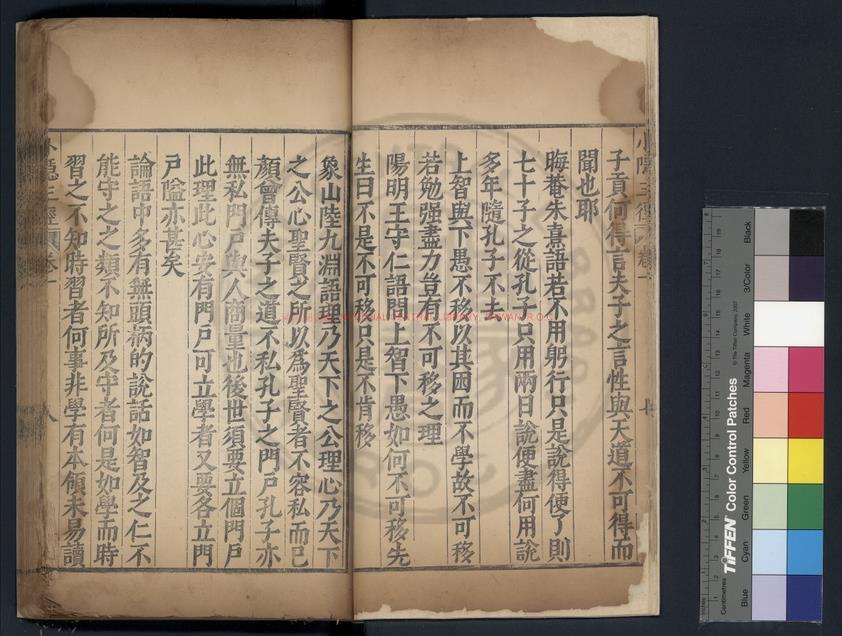 子貢何得言夫子之言性與天道不可得而
聞也耶
晦菴朱熹語若不用躬行只是說得便了則
七十子之從孔子只用兩日說便盡何用說
多年隨孔子不去
上智與下愚不移以其困而不學故不可移
若勉强盡力豈有不可移之理
陽明王守仁語問上智下愚如何不可移先
生曰不是不可移只是不肯移
象山陸九淵語理乃天下之公理心乃天下
之公心聖賢之所以爲聖賢者不容私而已
顏曾傳夫子之道不私孔子之門戶孔子亦
無私門戶與人商量也後世須要立個門戶
此理此心安有門戶可立學者又要各立門
戶隘亦甚矣
論語中多有無頭柄的說話如智及之仁不
能守之之類不知所及守者何是如學而時
習之不知時習者何事非學有本領未易讀
TIFFEN Color Control Patches
© The Tiffen Company, 2007
Centimetres
Inches
Blue
Cyan
Green
Yellow
Red
Magenta
White
3/Color
Black